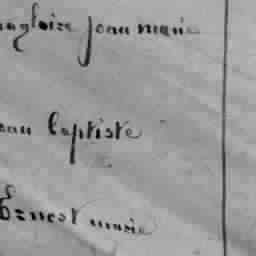 magloire jean marie
ean baptiste
Ernest marie